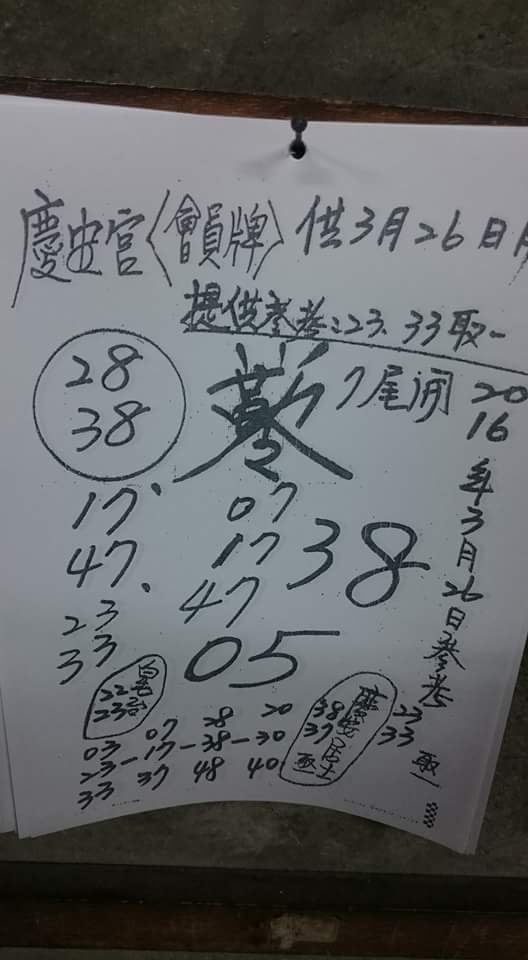 慶安宮〈會員牌〉供3月26日
提供參考:23.33取一
28
38
7尾開
17.
47.
23
33
07
17
47
38
05
2016年3月26日參考
23
33
取一
22
23
38
37
取一
03 07 28 20
23-17-38-30
33 37 48 40